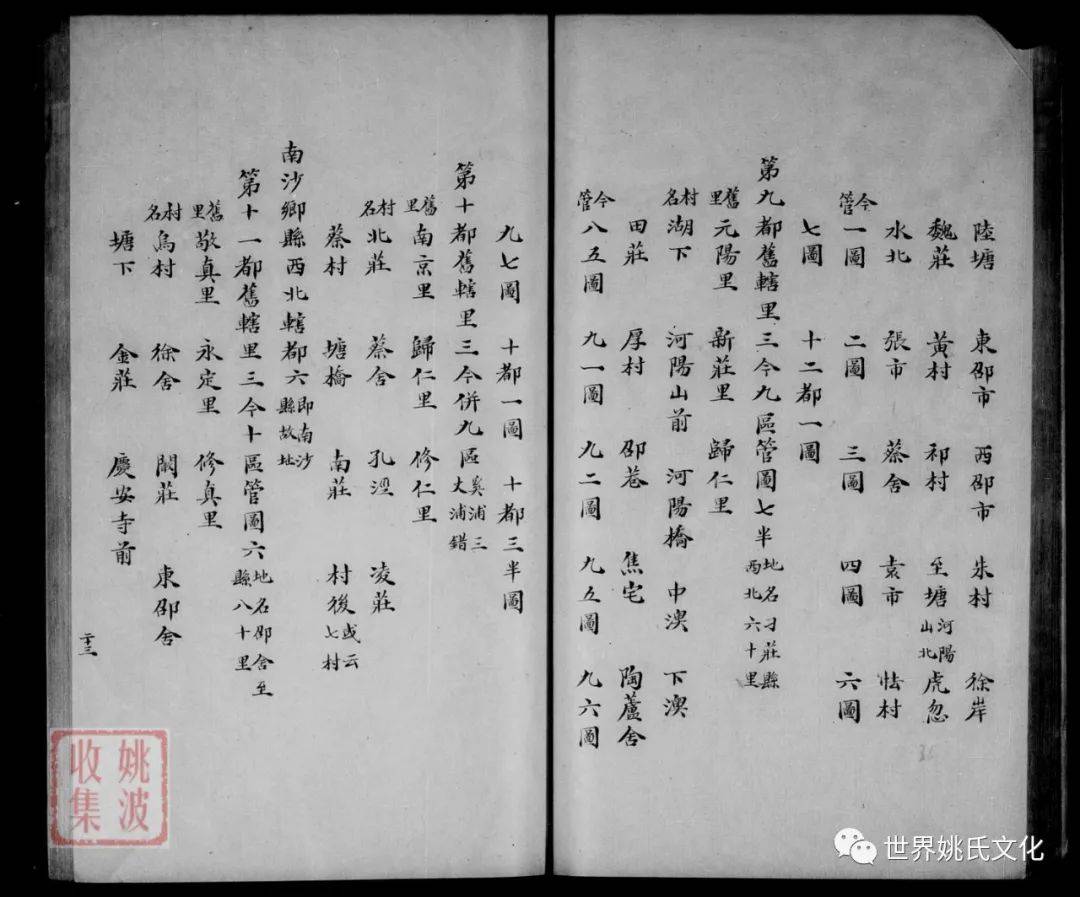 陸塘 東邵市 西邵市 朱村 徐岸
魏莊 黃村 祁村 至塘河陽山北 虎忽
水北 張市 蔡舍 袁市 怯村
今管 一圖 二圖 三圖 四圖 六圖
七圖 十二都一圖
第九都舊轄里三今九區管圖七半地名刁莊縣西北六十里
舊里 元陽里 新莊里 歸仁里
村名 湖下 河陽山前 河陽橋 中澳 下澳
田莊 厚村 邵巷 焦宅 陶蘆舍
今管 八五圖 九一圖 九二圖 九五圖 九六圖
九七圖 十都一圖 十都三半圖
第十都舊轄里三今併九區奚浦三丈浦錯
舊里 南京里 歸仁里 修仁里
村名 北莊 蔡舍 孔涇 凌莊
蔡村 塘橋 南莊 村後或云七村
南沙鄉縣西北轄都六即南沙縣故址
第十一都舊轄里三今十區管圖六地名邵舍至縣八十里
舊里 敬真里 永定里 修真里
村名 烏村 徐舍 闞莊 東邵舍
塘下 金莊 慶安寺前
二十三
姚波收集
世界姚氏文化